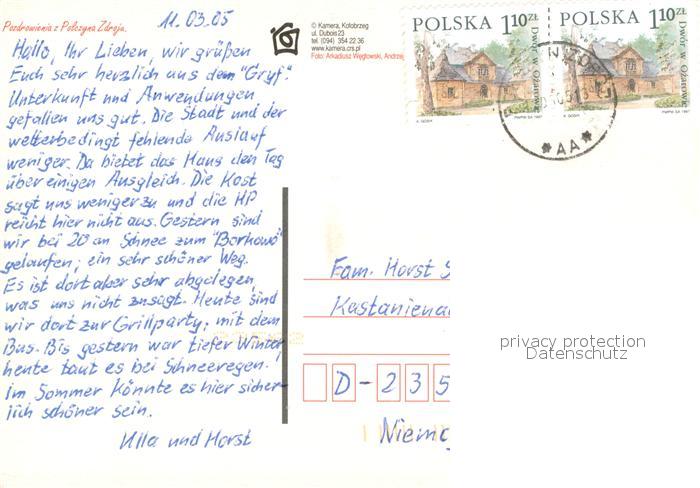 Pozdrowienia z Połczyna Zdroju.
11.03.05
Hallo, Ihr Lieben, wir grüßen
Euch sehr herzlich aus dem "Gryf".
Unterkunft und Anwendungen
gefallen uns gut. Die Stadt und der
wetterbedingt fehlende Auslauf
weniger. Da bietet das Haus den Tag
über einigen Ausgleich. Die Kost
sagt uns weniger zu und die HP
reicht hier nicht aus. Gestern sind
wir bei 20 cm Schnee zum "Borkowo"
gelaufen; ein sehr schöner Weg.
Es ist dort aber sehr abgelegen,
was uns nicht zusagt. Heute sind
wir dort zur Grillparty; mit dem
Bus. Bis gestern war tiefer Winter,
heute taut es bei Schneeregen.
Im Sommer könnte es hier sicher-
lich schöner sein.
Ulla und Horst
© Kamera, Kołobrzeg
ul. Dubois23
tel. (094) 354 22 36
www.kamera.crs.pl
Foto: Arkadiusz Węglowski, Andrzej
POLSKA 1,10 ZŁ
Dwór w Ożarowie
POLSKA 1,10 ZŁ
Dwór w Ożarowie
PWPW SA 1997
PWPW SA 1997
*AA*
Fam. Horst S
Kastaniena
D-235
Niem
privacy protection
Datenschutz